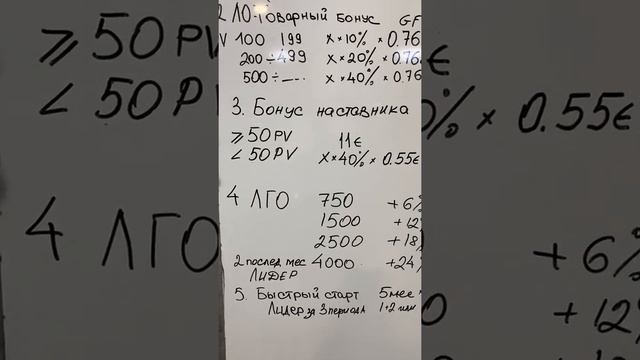 2 ЛО-Товарный бонус GF
100 199 x×10% × 0.76
200÷499 x×20% × 0.76
500÷---- x×40% × 0.76
3. Бонус наставника
≥50PV 11€
<50PV x×40% × 0.55€
4 ЛГО 750 +6%
1500 +12%
2500 +18%
2 послед мес 4000 +24%
ЛИДЕР
5. Быстрый старт 5мес
Лидер за 3 периода 1+2 или